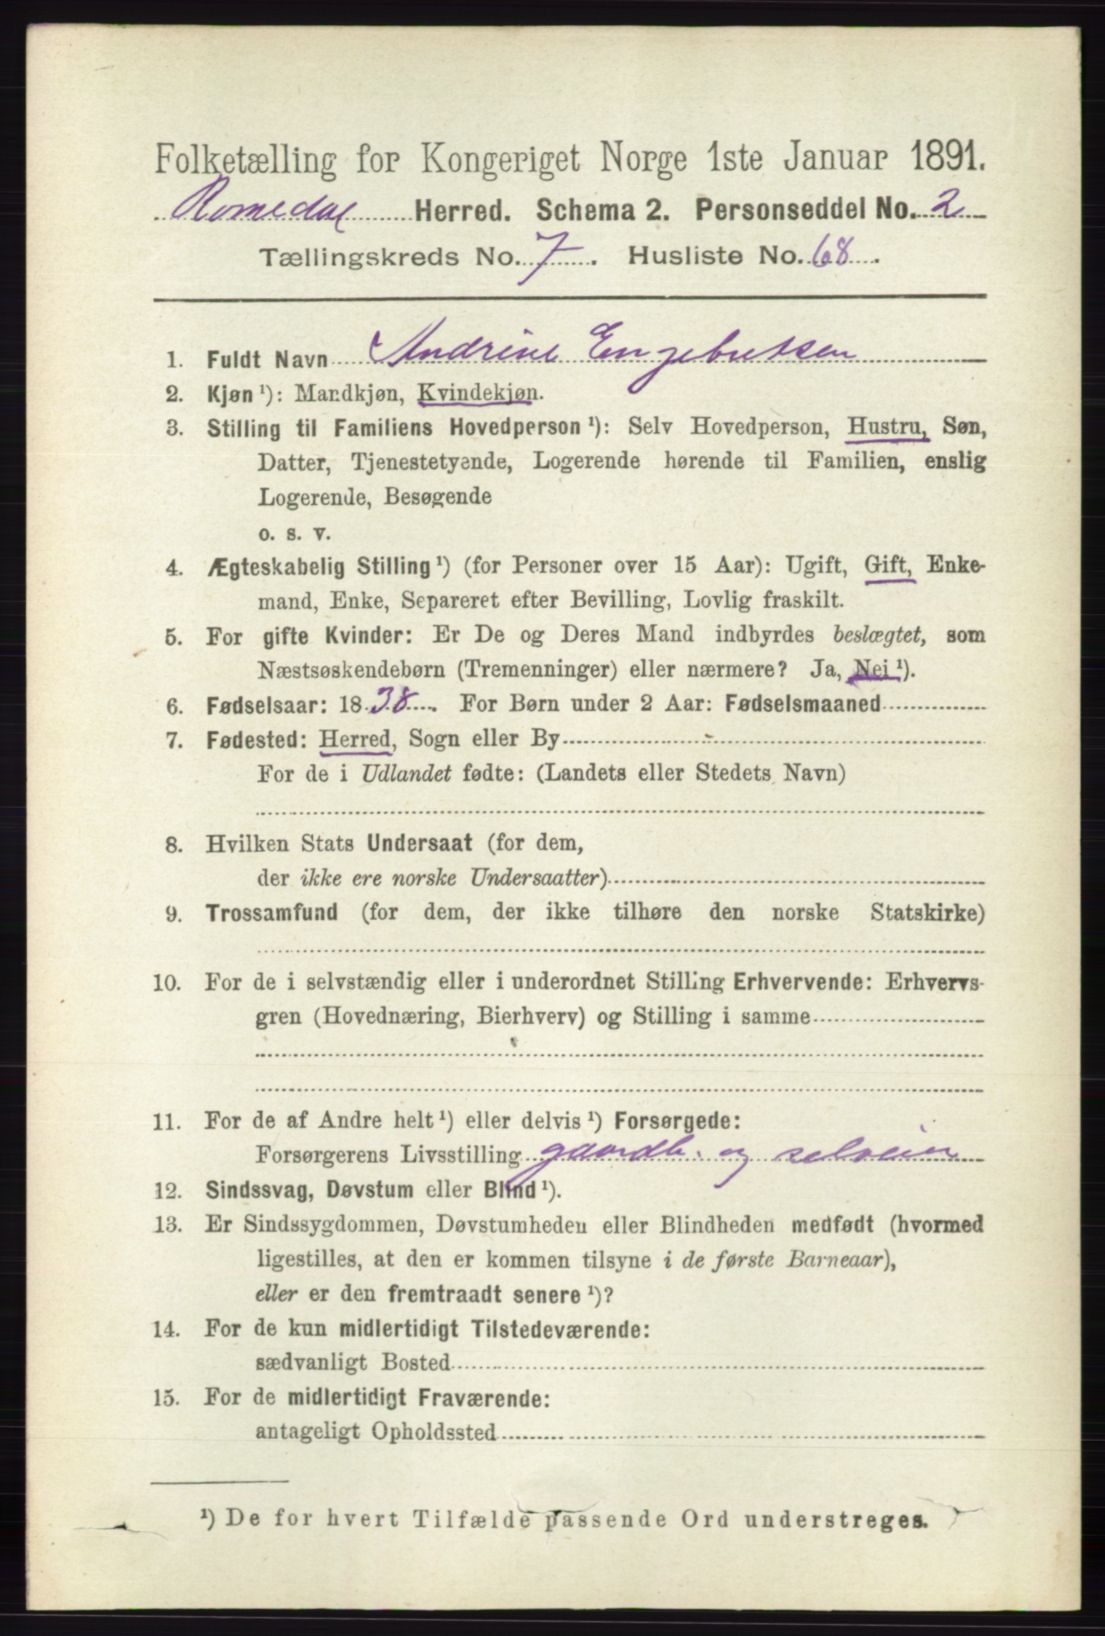 Folketælling for Kongeriget Norge 1ste Januar 1891.
Romedal Herred. Schema 2. Personseddel No. 2
Tællingskreds No. 7. Husliste No. 68.
1. Fuldt Navn Andrine Engebretsen
2. Kjøn ¹): Mandkjøn, Kvindekjøn.
3. Stilling til Familiens Hovedperson ¹): Selv Hovedperson, Hustru, Søn,
Datter, Tjenestetyende, Logerende hørende til Familien, enslig
Logerende, Besøgende
o. s. v.
4. Ægteskabelig Stilling ¹) (for Personer over 15 Aar): Ugift, Gift, Enke-
mand, Enke, Separeret efter Bevilling, Lovlig fraskilt.
5. For gifte Kvinder: Er De og Deres Mand indbyrdes beslægtet, som
Næstsøskendebørn (Tremenninger) eller nærmere? Ja, Nei ¹).
6. Fødselsaar: 1838. For Børn under 2 Aar: Fødselsmaaned
7. Fødested: Herred, Sogn eller By
For de i Udlandet fødte: (Landets eller Stedets Navn)
8. Hvilken Stats Undersaat (for dem,
der ikke ere norske Undersaatter)
9. Trossamfund (for dem, der ikke tilhøre den norske Statskirke)
10. For de i selvstændig eller i underordnet Stilling Erhvervende: Erhvervs-
gren (Hovednæring, Bierhverv) og Stilling i samme
11. For de af Andre helt ¹) eller delvis ¹) Forsørgede:
Forsørgerens Livsstilling gaardb. og selveier
12. Sindssvag, Døvstum eller Blind ¹).
13. Er Sindssygdommen, Døvstumheden eller Blindheden medfødt (hvormed
ligestilles, at den er kommen tilsyne i de første Barneaar),
eller er den fremtraadt senere ¹)?
14. For de kun midlertidigt Tilstedeværende:
sædvanligt Bosted
15. For de midlertidigt Fraværende:
antageligt Opholdssted
¹) De for hvert Tilfælde passende Ord understreges.